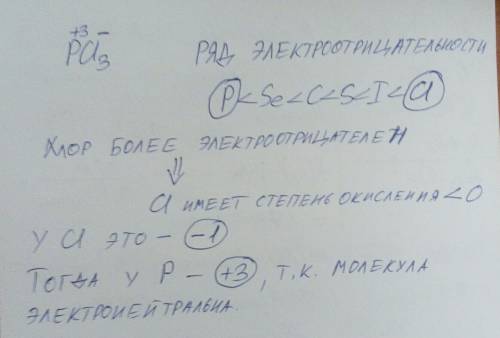 +3 −
PCl3 РЯД ЭЛЕКТРООТРИЦАТЕЛЬНОСТИ
P<Se<C<S<I<Cl
ХЛОР БОЛЕЕ ЭЛЕКТРООТРИЦАТЕЛЕН
⇓
Cl ИМЕЕТ СТЕПЕНЬ ОКИСЛЕНИЯ <0
У Cl ЭТО – -1
ТОГДА У P – +3, Т.К. МОЛЕКУЛА
ЭЛЕКТРОНЕЙТРАЛЬНА.